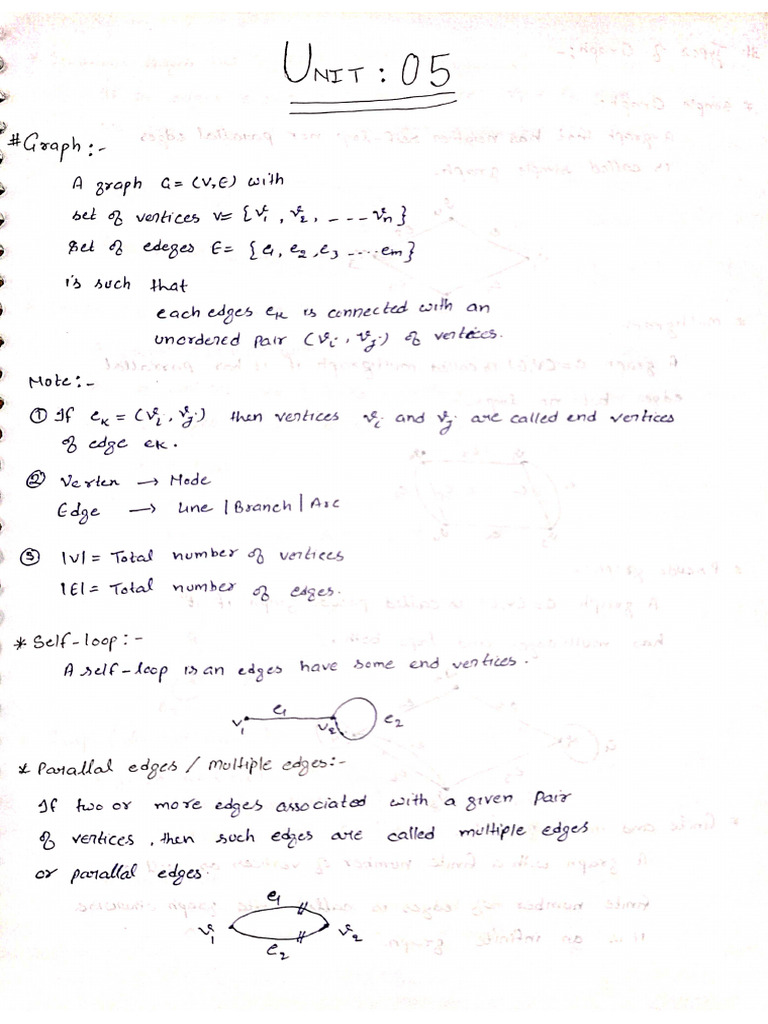 UNIT : 05
# Graph :-
A graph G = (V,E) with
set of vertices V = {v1, v2, ---- vn}
set of edeges E = {e1, e2, e3 ..... em}
is such that
each edges eK is connected with an
unordered pair (vi, vj) of vertices.
Note :-
① If eK = (vi, vj) then vertices vi and vj are called end vertices
of edge eK.
② Vertex → Node
Edge → Line | Branch | Arc
③ |V| = Total number of vertices
|E| = Total number of edges.
* Self-loop :-
A self-loop is an edges have some end vertices.
e1
v1 v2 e2
* Parallal edges / multiple edges :-
If two or more edges associated with a given pair
of vertices, then such edges are called multiple edges
or parallal edges.
e1
v1 v2
e2